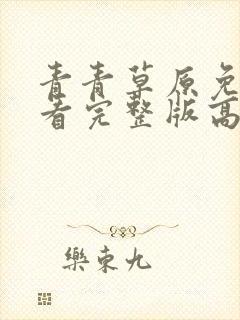 青青草原免
看完整版高
樂東九